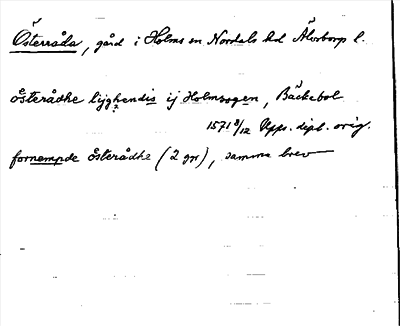 Österråda, gård i Holms sn Nordals hd Älvsborgs l.
österådhe lijghendis ij Holmsogen, Bäckebol
1571 8/12 Upps. dipl. orig.
fornempde österådhe (2 ggr), samma brev